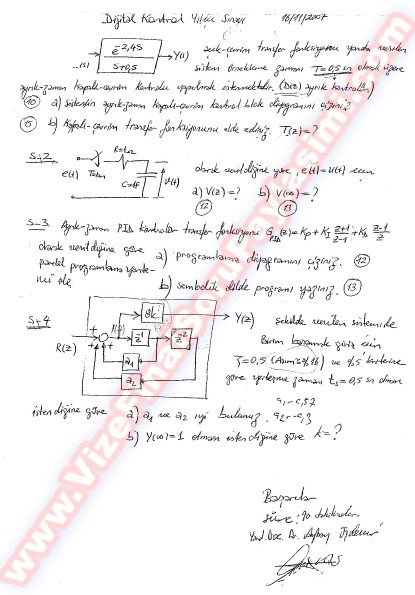 Dijital Kontrol Yıliçi Sınavı 16/11/2007
e^-2,4s
s+0,5
Y(s)
açık-çevrim transfer fonksiyonu yanda verilen
sistem örnekleme zamanı T=0,5 sn olmak üzere
ayrık-zaman kapalı-çevrim kontrolu yapılmak istenmektedir. (D(z) ayrık kontrolör)
(10) a) sistemin ayrık-zaman kapalı-çevrim kontrol blok diyagramını çiziniz?
(15) b) Kapalı-çevrim transfer fonksiyonunu elde ediniz. T(z)=?
S-2
e(t)
R=1Ω
C=1F
v(t)
olarak verildiğine göre, e(t)=u(t) için
a) V(z)=? b) V(∞)=?
(12) (13)
S-3 Ayrık-zaman PID kontrolör transfer fonksiyonu G_PID(z)=Kp+KI z+1/z-1+KD z-1/z
olarak verildiğine göre
paralel programlama
a) programlama diyagramını çiziniz. (12)
b) sembolik dilde programı yazınız. (13)
S-4
R(z)
8k
z^-1
z^-2
a1
a2
Y(z)
şekilde verilen sistemde
Birim basamak giriş için
ζ=0,5 (Aşım=%16) ve %5 kriterine
göre yerleşme zamanı ts=0,5 sn olması
istendiğine göre a) a1 ve a2 yi bulunuz.
b) Y(∞)=1 olması istendiğine göre k=?
Başarılar
Süre: 90 dakikadır.
Yard. Doç. Dr.
www.VizeFinalSoruPaylasimi.com